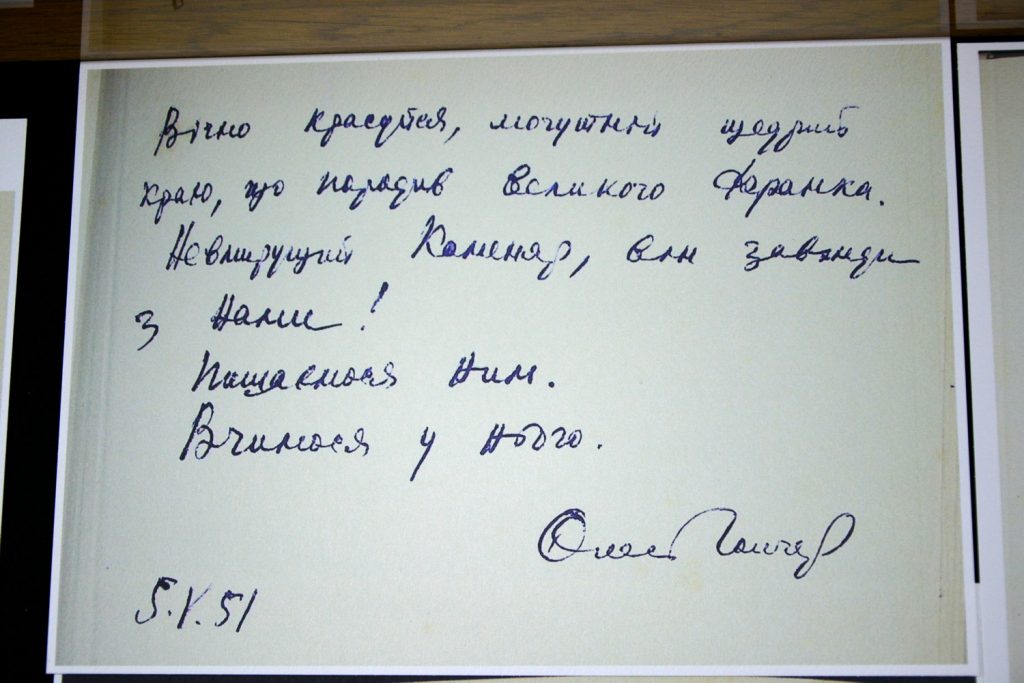 Вічно красуйся, могутній щедрий
краю, що породив великого Франка.
Невмирущий Каменяр, він завжди
з нами!
Пишаємося ним.
Вчимося у нього.
Олесь Гончар
5.V.51